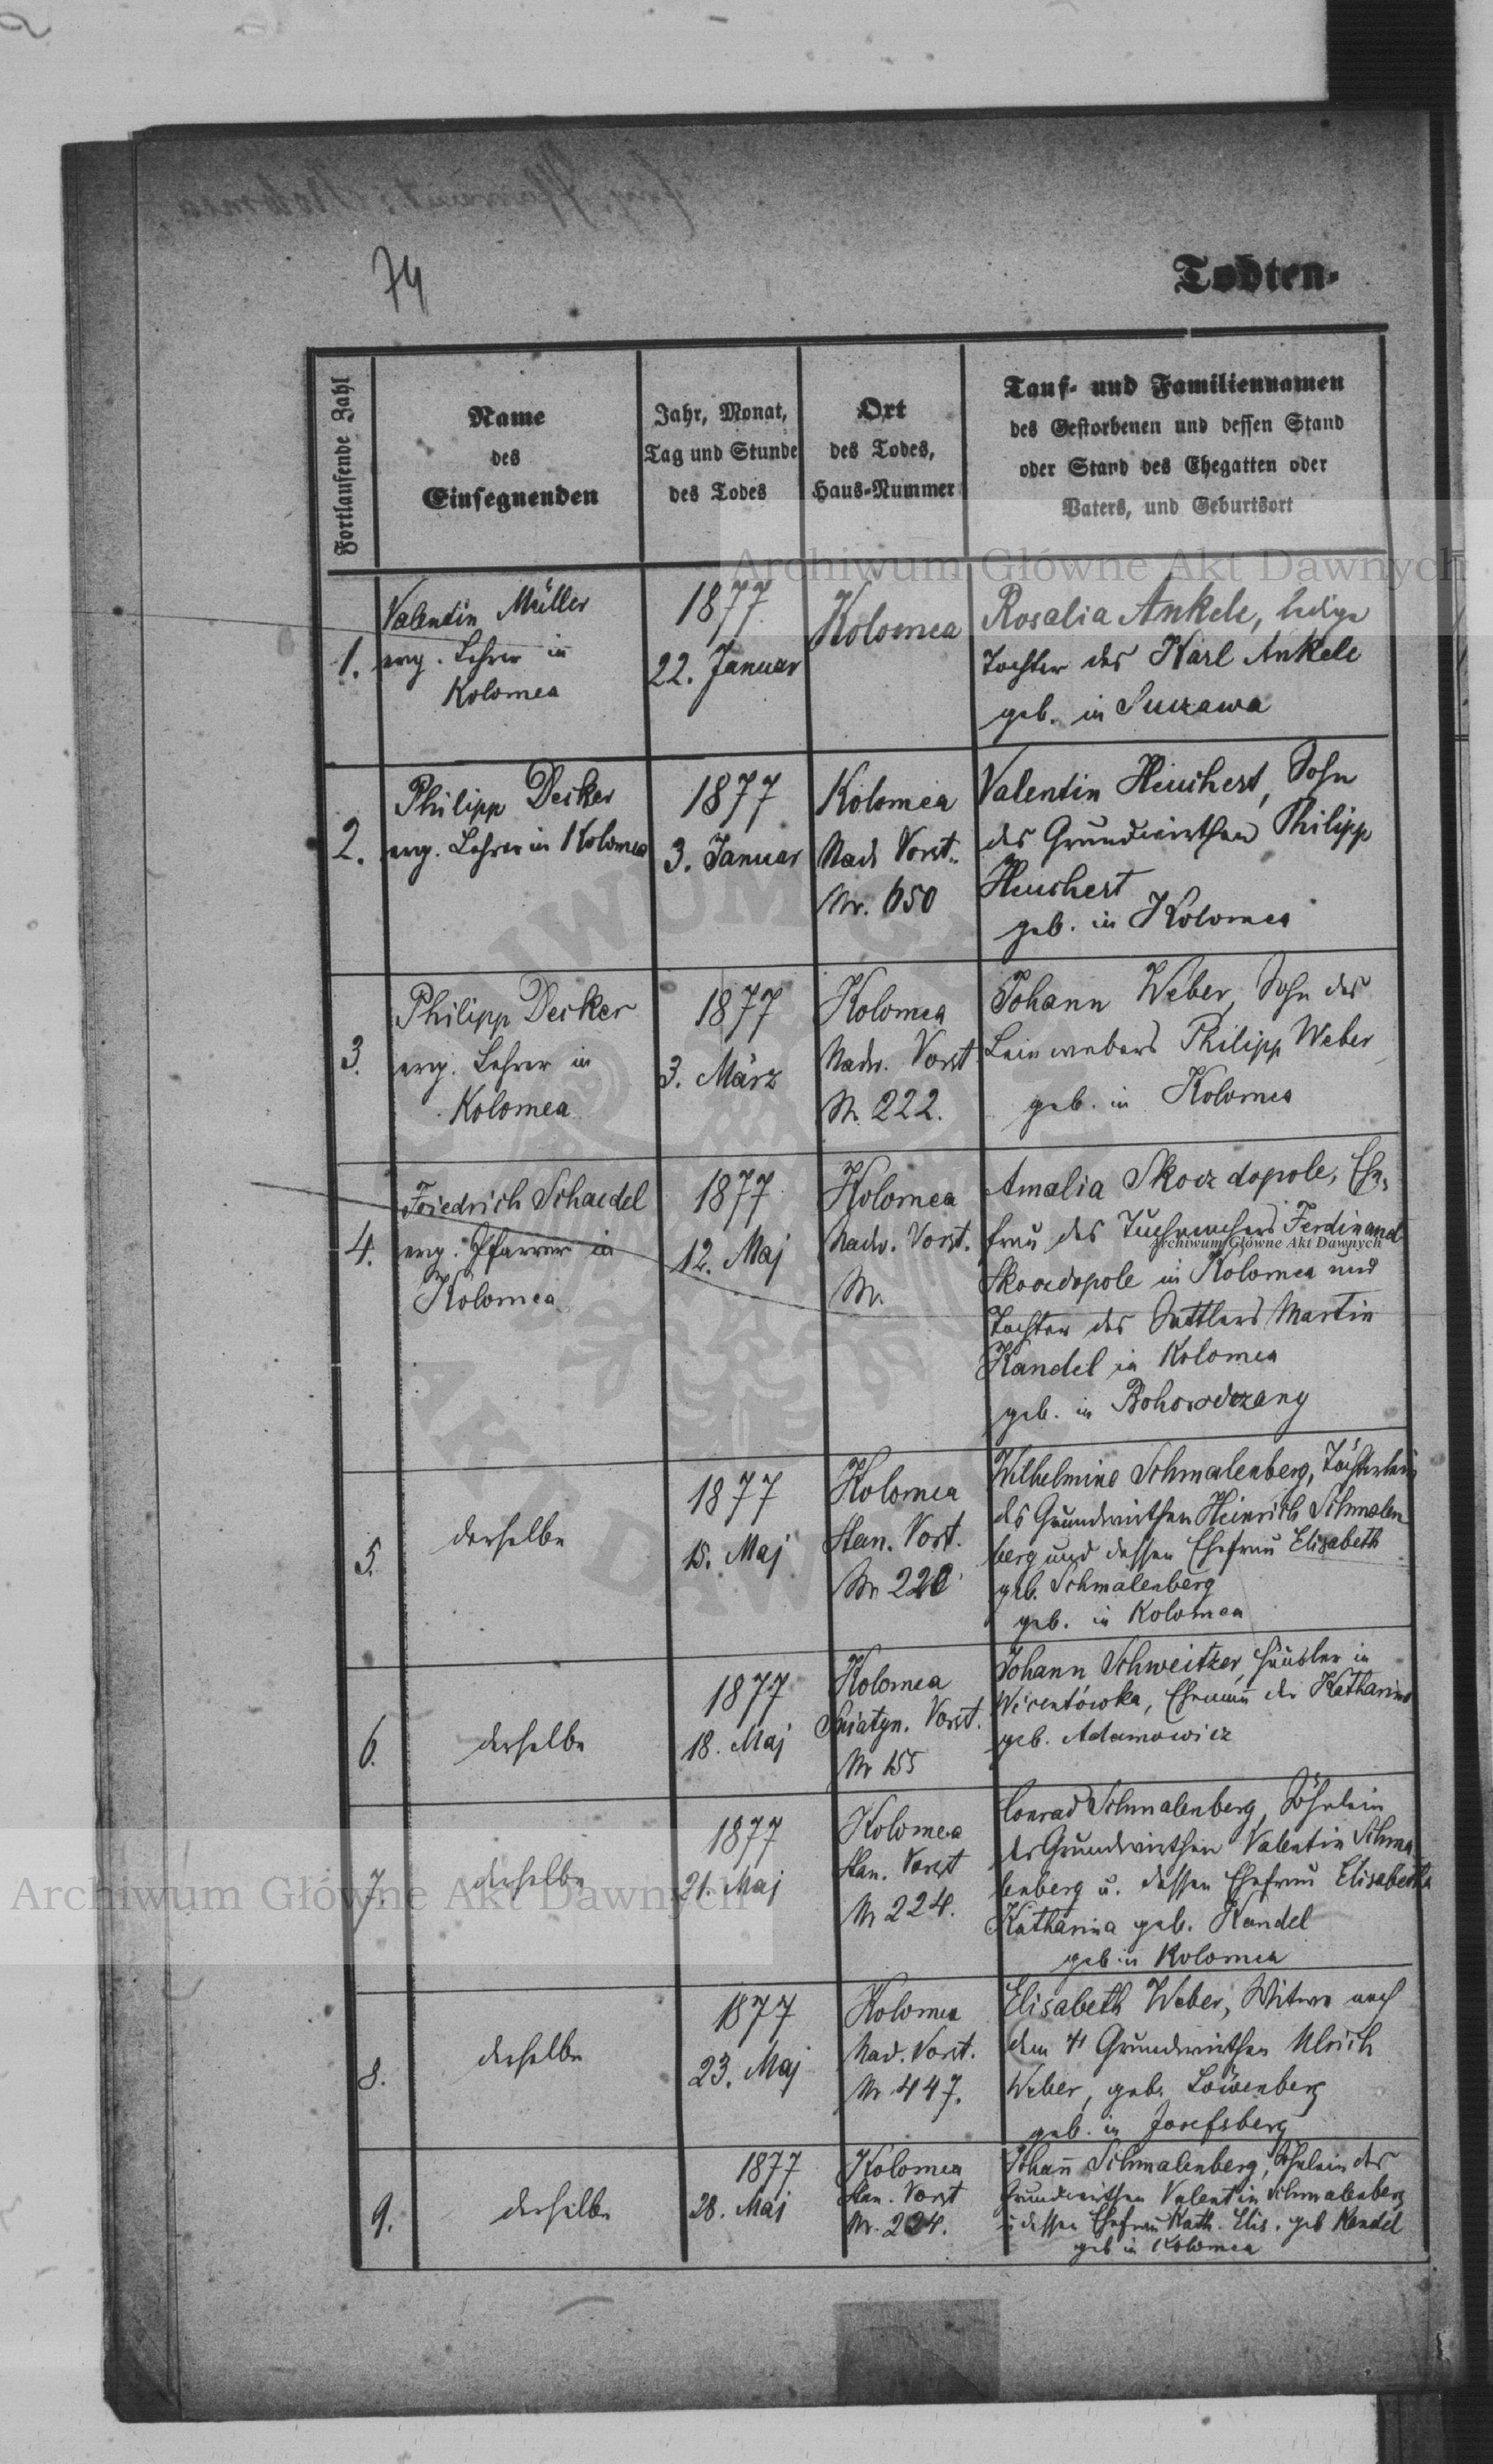 74
Todten-
Fortlaufende Zahl
Name
des
Einsegnenden
Jahr, Monat,
Tag und Stunde
des Todes
Ort
des Todes,
Haus-Nummer
Tauf- und Familiennamen
des Gestorbenen und dessen Stand
oder Stand des Ehegatten oder
Vaters, und Geburtsort
Archiwum Główne Akt Dawnych
1.
Valentin Müller
evg. Lehrer in
Kolomea
1877
22. Januar
Kolomea
Rosalia Ankele, ledige
Tochter des Karl Ankele
geb. in Suczawa
2.
Philipp Decker
evg. Lehrer in Kolomea
1877
3. Januar
Kolomea
Nad. Vorst.
Nr. 650
Valentin Heuchert, Sohn
des Grundwirthen Philipp
Heuchert
geb. in Kolomea
3.
Philipp Decker
evg. Lehrer in
Kolomea
1877
3. März
Kolomea
Nadw. Vorst
Nr. 222.
Johann Weber, Sohn des
Leinwebers Philipp Weber
geb. in Kolomea
4.
Friedrich Schaedel
evg. Pfarrer in
Kolomea
1877
12. Maj
Kolomea
Nadw. Vorst.
Nr.
Amalia Skorzdopole, Ehe-
frau des Ferdinand
Archiwum Główne Akt Dawnych
Skorzdopole in Kolomea und
Tochter des Sattlers Martin
Kandel in Kolomea
geb. in Bohorodczany
5.
derselbe
1877
15. Maj
Kolomea
Stan. Vorst.
Nr 220
Wilhelmine Schmalenberg, Töchterlein
des Grundwirthen Heinrich Schmalen
berg und dessen Ehefrau Elisabeth
geb. Schmalenberg
geb. in Kolomea
6.
derselbe
1877
18. Maj
Kolomea
Sniatyn. Vorst.
Nr 155
Johann Schweitzer, Häusler in
Wincentówka, Ehemann der Katharina
geb. Adamowicz
7.
derselbe
1877
21. Maj
Kolomea
Stan. Vorst
Nr 224.
Conrad Schmalenberg, Söhnlein
des Grundwirthen Valentin Schma
lenberg u. dessen Ehefrau Elisabetha
Katharina geb. Kandel
geb. in Kolomea
Archiwum Główne Akt Dawnych
8.
derselbe
1877
23. Maj
Kolomea
Nad. Vorst.
Nr 447.
Elisabeth Weber, Witwe nach
dem † Grundwirthen Ulrich
Weber, geb. Löwenberg
geb. in Josefsberg
9.
derselbe
1877
28. Mai
Kolomea
Stan. Vorst
Nr. 224.
Johañ Schmalenberg, Söhnlein des
Grundwirthen Valentin Schmalenberg
u dessen Ehefrau Kath. Elis. geb Kandel
geb in Kolomea